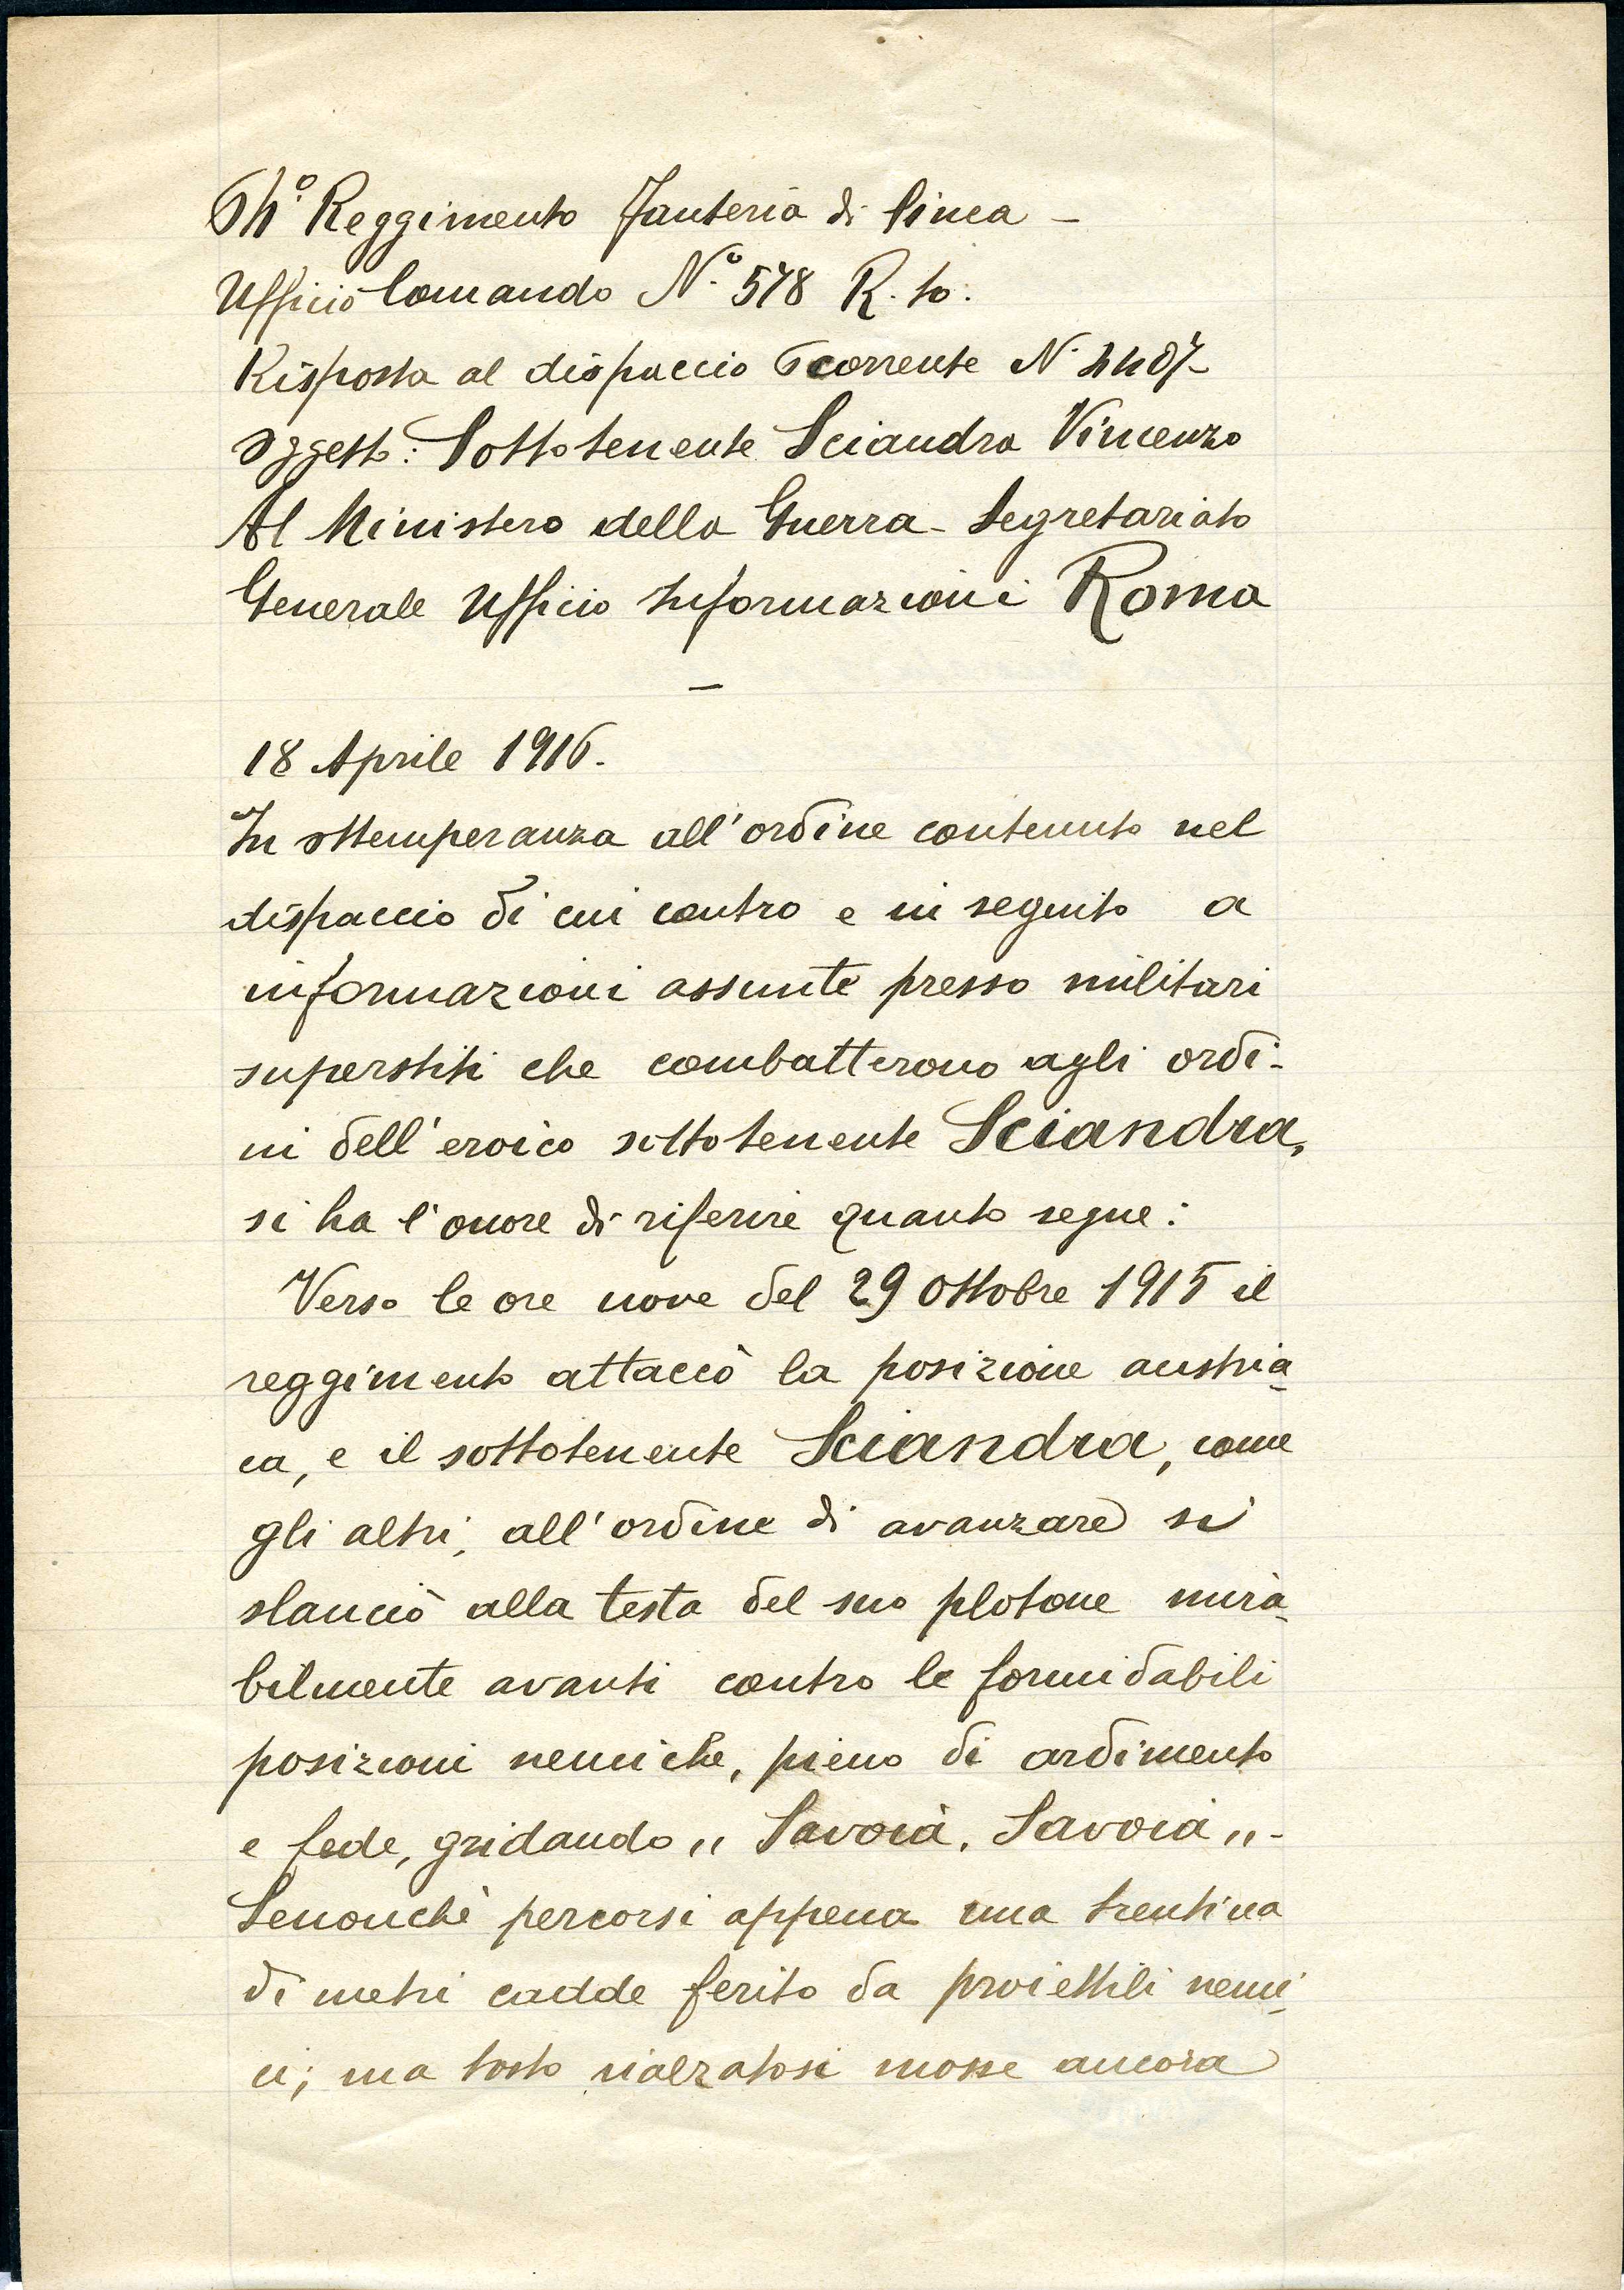 Reggimento Fanteria di linea -
Ufficio Comando N.° 578 R. to.
Risposta al dispaccio 6 corrente N.
Oggetto: Sottotenente Sciandra Vincenzo
Al Ministero della Guerra - Segretariato
Generale Ufficio Informazioni Roma
—
18 Aprile 1916.
In ottemperanza all'ordine contenuto nel
dispaccio di cui contro e in seguito a
informazioni assunte presso militari
superstiti che combatterono agli ordi-
ni dell'eroico sottotenente Sciandra,
si ha l'onore di riferire quanto segue:
Verso le ore nove del 29 Ottobre 1915 il
reggimento attaccò la posizione austria-
ca, e il sottotenente Sciandra, come
gli altri, all'ordine di avanzare si
slanciò alla testa del suo plotone mira-
bilmente avanti contro le formidabili
posizioni nemiche, pieno di ardimento
e fede, gridando „ Savoia, Savoia „ -
Senonchè percorsi appena una trentina
di metri cadde ferito da proiettili nemi-
ci; ma tosto rialzatosi mosse ancora